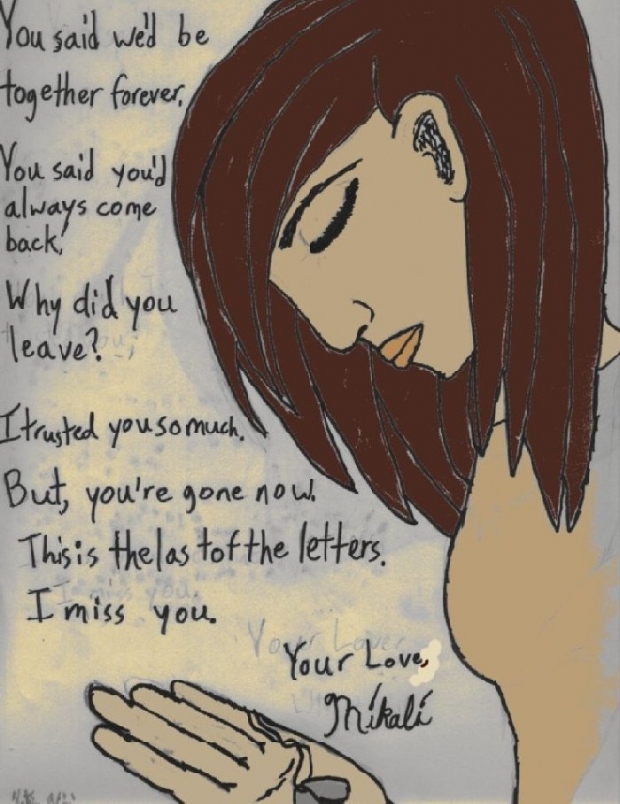 You said we'd be
together forever.
You said you'd
always come
back.
Why did you
leave?
I trusted you so much.
But, you're gone now.
This is the last of the letters.
I miss you.
Your Love,
Mikali